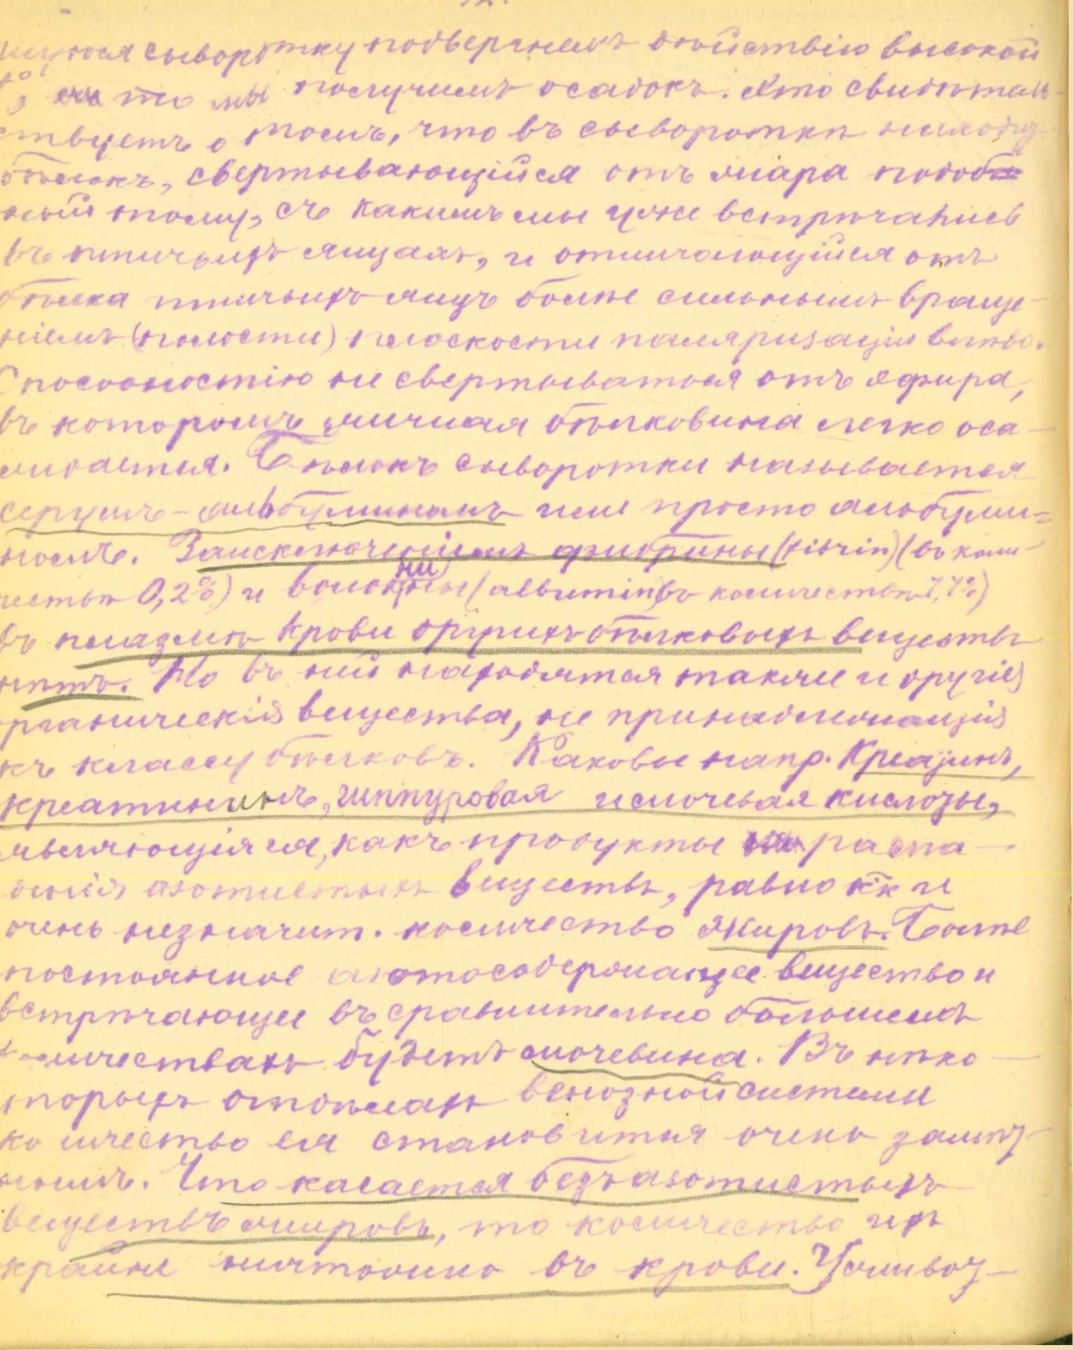 сыворотку подвергнемъ дѣйствію высокой
t°, то мы получимъ осадокъ. Это свидѣтель-
ствуетъ о томъ, что въ сывороткѣ находи
бѣлокъ, свертывающійся отъ жара подоб
ный тому, съ какимъ мы уже встрѣчались
въ птичьихъ яицахъ, и отличающійся отъ
бѣлка птичьихъ яицъ болѣе сильнымъ враще-
ніемъ (полости) плоскости паляризаціи влѣво.
Способностію не свертываться отъ эфира,
въ которомъ яичная бѣлковина легко оса-
ждается. Бѣлокъ сыворотки называется
серумъ-альбуминомъ или просто альбуми=
номъ. Заисключеніемъ фибрины (fibrin) (въ коли-
чествѣ 0,2%) и (albumin) въ количествѣ
въ плазмѣ крови другихъ бѣлковыхъ веществъ
нѣтъ. Но въ ней находятся также и другія
рганическія вещества, не принадлежащія
къ классу бѣлковъ. Каковы напр. Креатинъ,
креатининъ, гиппуровая и мочевая кислоты,
являющіяся, какъ продукты распа-
денія азотистыхъ веществъ, равно к̅к и
очень незначит. количество жировъ. Болѣе
постоянное азотосодержащее вещество и
встрѣчающее въ сравнительно большемъ
количествахъ будетъ мочевина. Въ нѣко-
торыхъ отдѣлахъ венозной системы
количество ея становится очень замѣт-
нымъ. Что касается безъазотистыхъ
веществъ жировъ, то количество ихъ
крайне ничтожно въ крови.